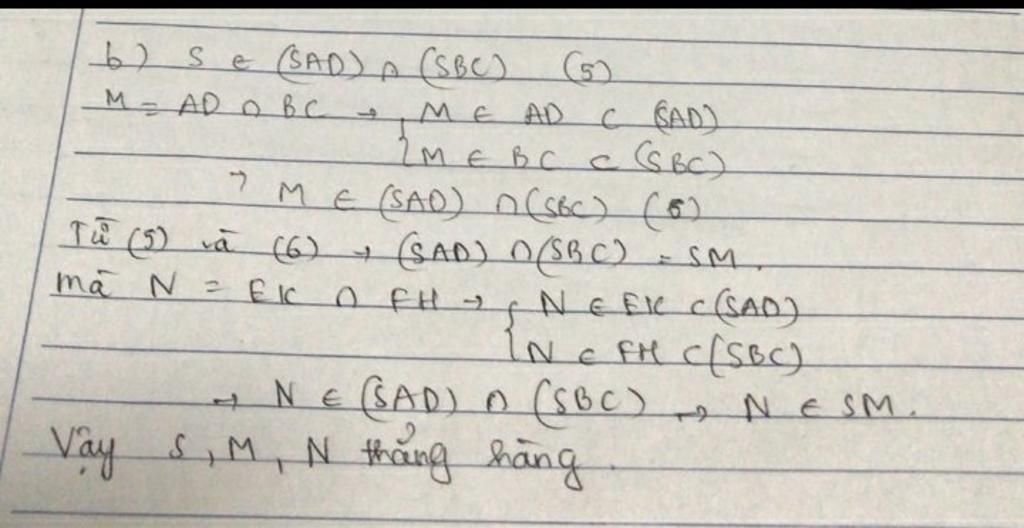 b) S ∈ (SAD) ∩ (SBC) (5)
M = AD ∩ BC → { M ∈ AD ⊂ (SAD)
M ∈ BC ⊂ (SBC)
→ M ∈ (SAD) ∩ (SBC) (6)
Từ (5) và (6) → (SAD) ∩ (SBC) = SM.
mà N = EK ∩ FH → { N ∈ EK ⊂ (SAD)
N ∈ FH ⊂ (SBC)
→ N ∈ (SAD) ∩ (SBC) → N ∈ SM.
Vậy S, M, N thẳng hàng.